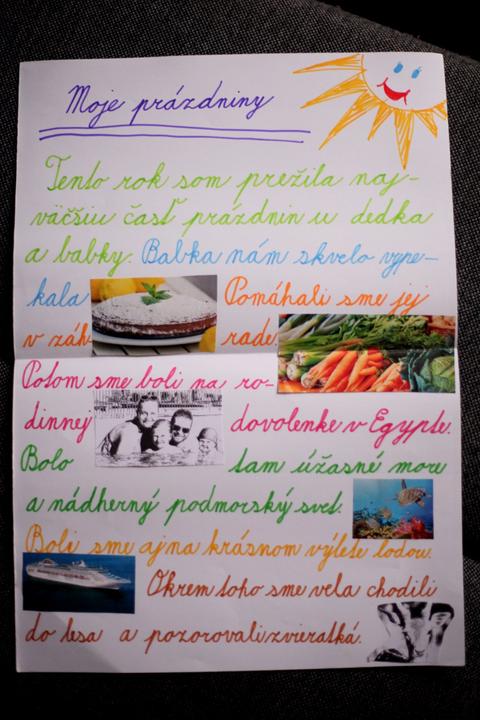 Moje prázdniny
Tento rok som prežila naj-
väčšiu časť prázdnin u dedka
a babky. Babka nám skvelo vype-
kala Pomáhali sme jej
v záh rade
Potom sme boli na ro-
dinney dovolenke v Egypte.
Bolo tam úžasné more
a nádherný podmorský svet.
Boli sme aj na krásnom výlete loďou.
Okrem toho sme vela chodili
do lesa a pozorovali zvieratká.